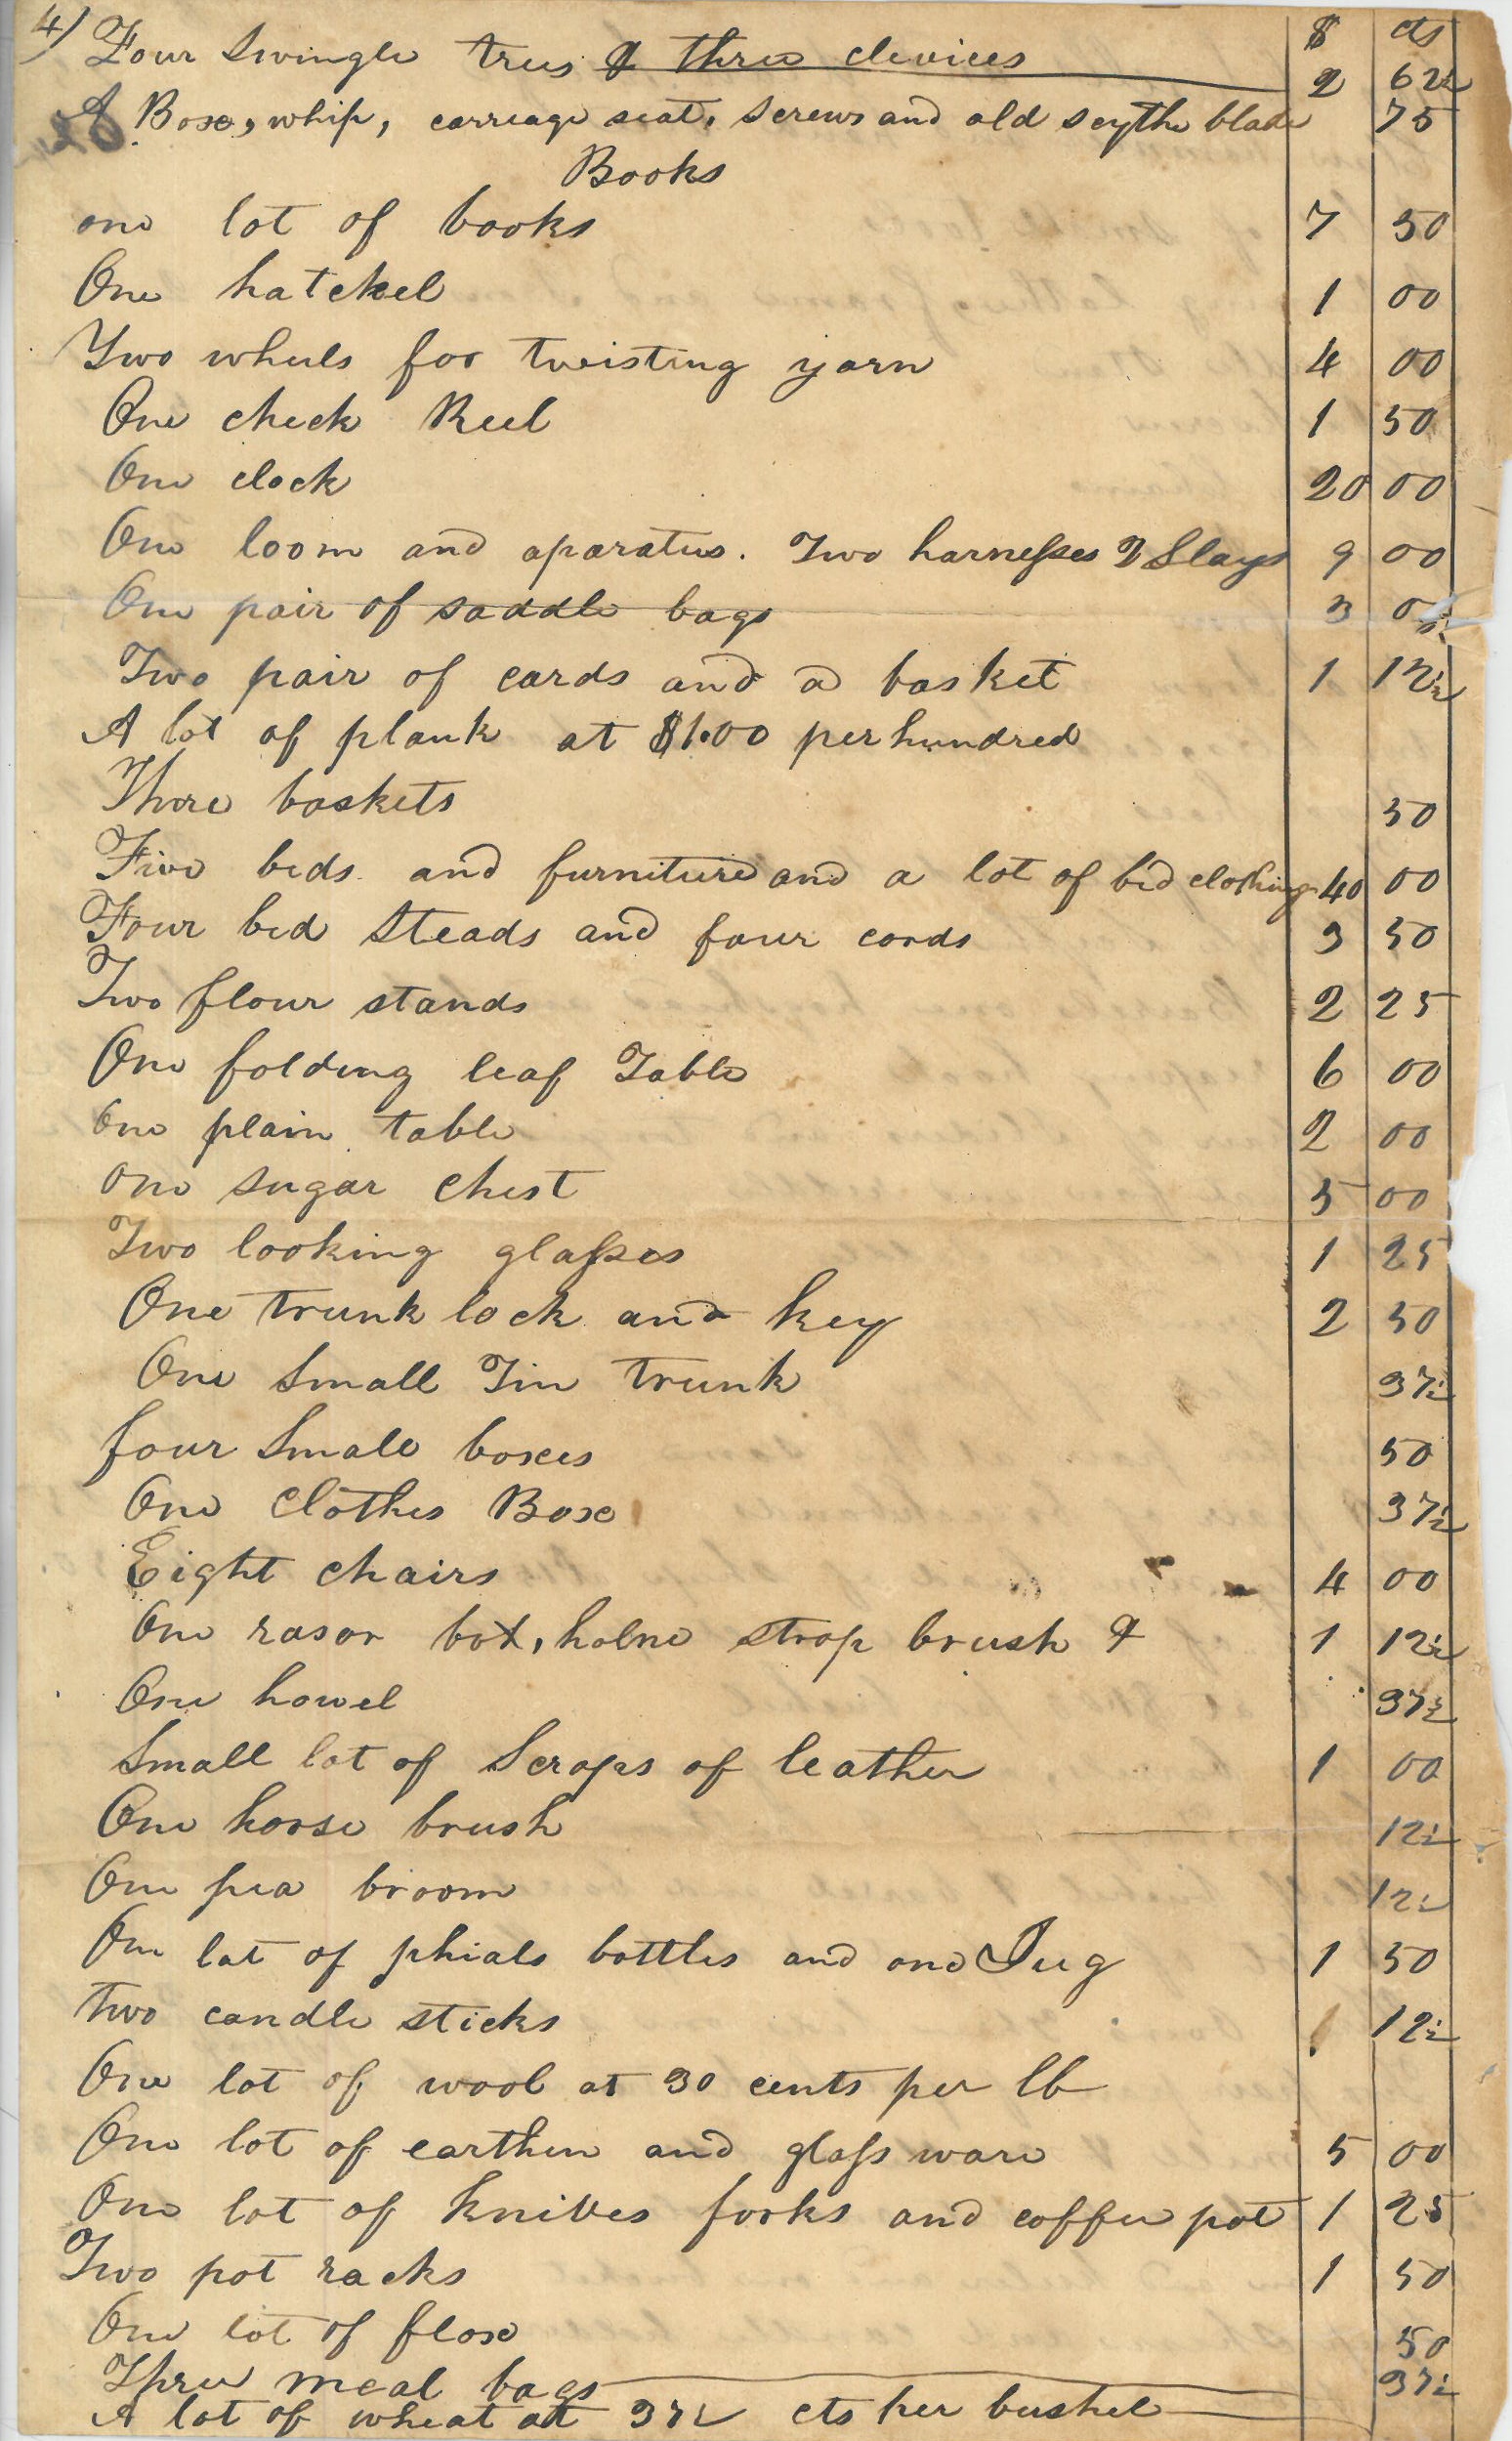 4) $ cts
Four Swingle trees & three clevices 2 62½
A Box, whip, carreage seat, screws and old scythe blade 75
Books
one lot of books 7 50
One hatchel 1 00
Two wheels for twisting yarn 4 00
One check Reel 1 50
One clock 20 00
One loom and aparatus. Two harnesses 2 Slays 9 00
One pair of saddle bags 3
Two pair of cards and a basket 1 12½
A lot of plank at $1.00 per hundred
Three baskets 50
Five beds and furniture and a lot of bed clothing 40 00
Four bed Steads and four cords 3 50
Two flour stands 2 25
One folding leaf Table 6 00
One plain table 2 00
One sugar chest 5 00
Two looking glasses 1 25
One trunk lock and key 2 50
One Small Tin trunk 37½
four Small boxes 50
One Clothes Box 37½
Eight chairs 4 00
One rasor box, holne strop brush & 1 12½
One howel 37½
Small lot of Scraps of leather 1 00
One horse brush 12½
One pea broom 12½
One lot of phials bottles and one Jug 1 50
Two candle sticks 12½
One lot of wool at 30 cents per lb
One lot of earthen and glass ware 5 00
One lot of knives forks and coffee pot 1 25
Two pot racks 1 50
One lot of flax 50
Three meal bags 37½
A lot of wheat at 37½ cts per bushel